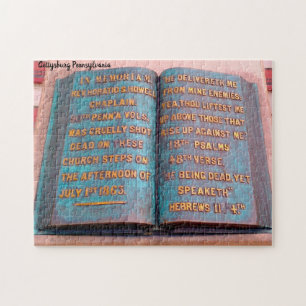 Gettysburg Pennsylvania
IN MEMORIAM
REV. HORATIO S. HOWELL
CHAPLAIN
PENN'A VOLS.
WAS CRUELLY SHOT
DEAD ON THESE
CHURCH STEPS ON
THE AFTERNOON OF
JULY 1ST 1863.
HE DELIVERETH ME
FROM MINE ENEMIES.
YEA THOU LIFTEST ME
UP ABOVE THOSE THAT
RISE UP AGAINST ME.
18TH PSALMS
48TH VERSE.
HE BEING DEAD, YET
SPEAKETH
HEBREWS 11. 4TH